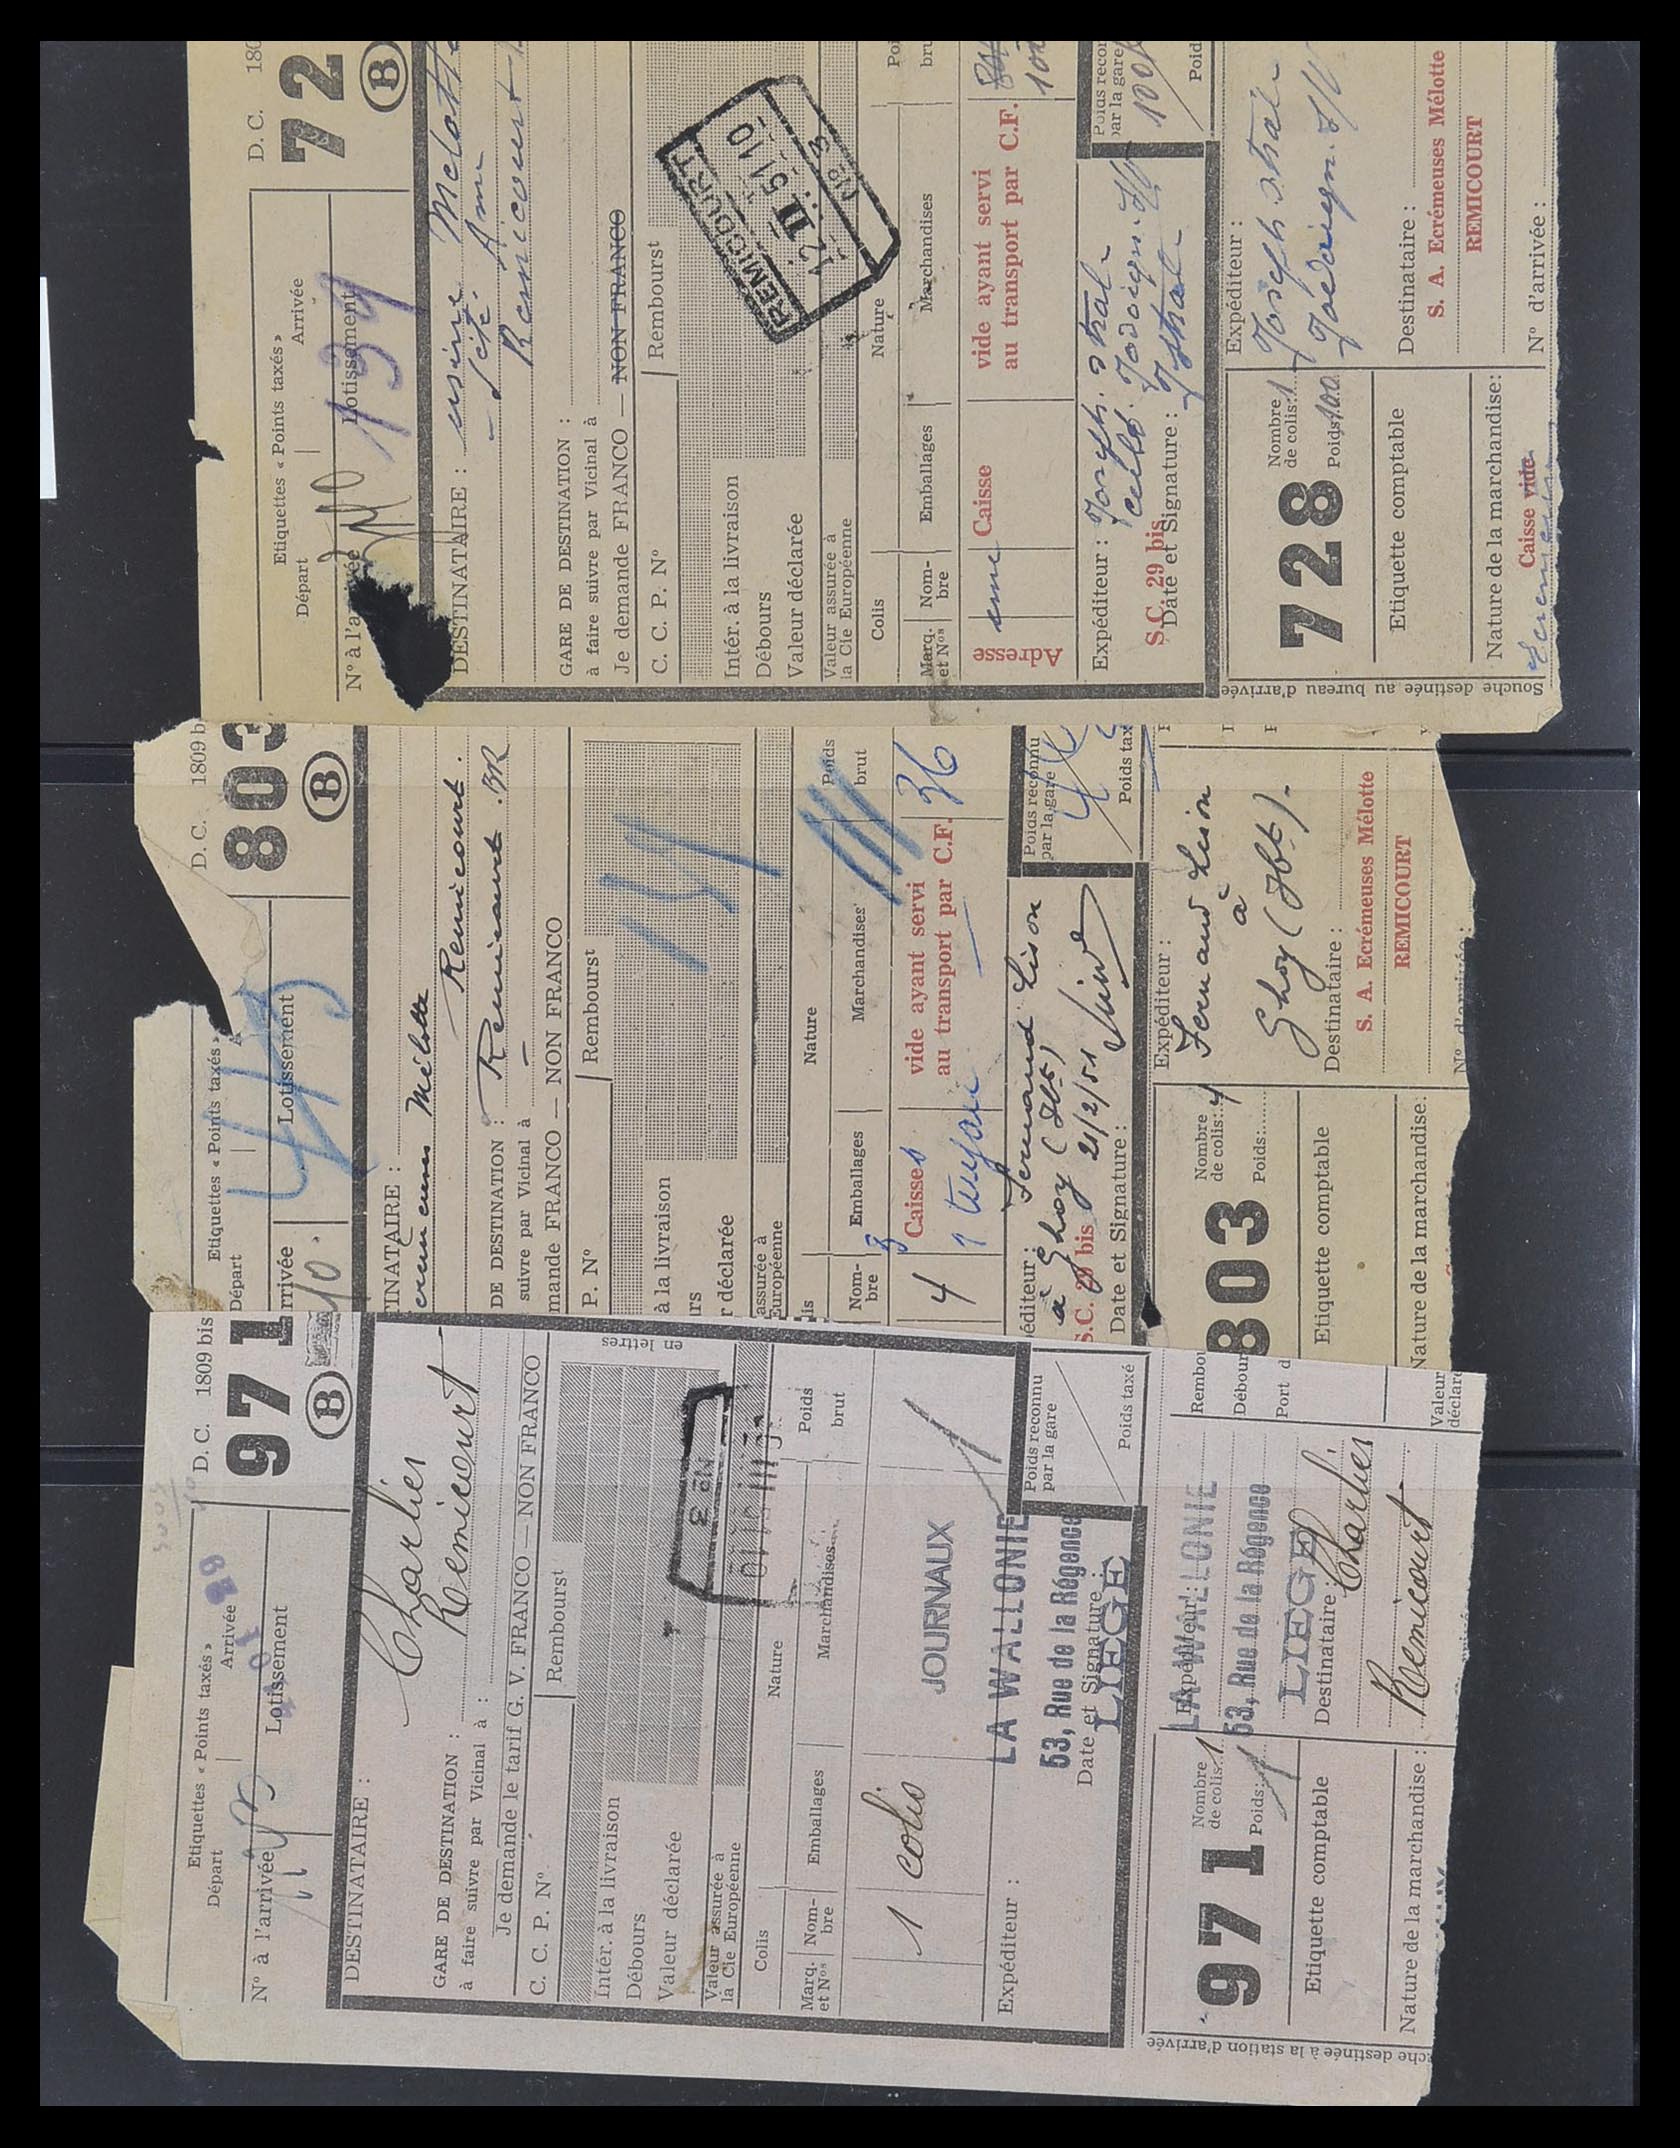 D. C. 180
72
B
Etiquettes « Points taxés »
Départ
Arrivée
N° à l'arrivée
Lotissement
139
DESTINATAIRE : usine Melotte
Sté Ame
Remicourt
GARE DE DESTINATION :
à faire suivre par Vicinal à
Je demande FRANCO — NON FRANCO
C. C. P. N°
Rembourst
Intér. à la livraison
Débours
Valeur déclarée
Valeur assurée à
la Cie Européenne
REMICOURT
12 II 51 10
N° 3
Colis
Nature
Poi
Marq.
et Nos
Nom-
bre
Emballages
Marchandises
bru
Adresse
Caisse
vide ayant servi
au transport par C.F.
100
Expéditeur : Joseph
S.C. 29 bis
Date et Signature :
Poids recon
par la gare
100
Poid
728
Nombre
de colis: 1
Poids 100
Expéditeur :
Joseph
Etiquette comptable
Destinataire :
S. A. Ecrémeuses Mélotte
REMICOURT
Nature de la marchandise:
Caisse vide
N° d'arrivée :
Souche destinée au bureau d'arrivée
D. C. 1809 b
803
B
Etiquettes « Points taxés »
Départ
A
rrivée
Lotissement
TINATAIRE :
Mélotte
Remicourt.
DE DESTINATION : Remicourt
suivre par Vicinal à
mande FRANCO — NON FRANCO
P. N°
Rembourst
à la livraison
rs
r déclarée
assurée à
Européenne
is
Nature
Poids
Nom-
bre
Emballages
Marchandises
brut
4
3 Caisses
vide ayant servi
au transport par C.F.
36
1 tuyau
éditeur : Fernand Lison
à Ghoy (Hbt)
S.C. 29 bis 21/2/51
Date et Signature :
Poids reconnu
par la gare
Poids tax
803
Nombre
de colis: 4
Poids:
Expéditeur :
Fernand Lison
à
Ghoy (Hbt).
Etiquette comptable
Destinataire :
S. A. Ecrémeuses Mélotte
REMICOURT
Nature de la marchandise:
N° d'arrivée :
D. C. 1809 bis
971
B
Etiquettes « Points taxés »
Départ
Arrivée
N° à l'arrivée
Lotissement
DESTINATAIRE :
Charlier
Remicourt
GARE DE DESTINATION :
à faire suivre par Vicinal à :
Je demande le tarif G. V. FRANCO — NON FRANCO
C. C. P. N°
Rembourst
en lettres
Intér. à la livraison
Débours
Valeur déclarée
Valeur assurée à
la Cie Européenne
N° 3
Colis
Nature
Poids
Marq.
et Nos
Nom-
bre
Emballages
Marchandises
brut
1
colis
JOURNAUX
1
Expéditeur :
LA WALLONIE
53, Rue de la Régence
LIEGE
Date et Signature :
Poids reconnu
par la gare
Poids taxé
971
Nombre
de colis: 1
Poids: 1
Expéditeur :
LA WALLONIE
53, Rue de la Régence
LIEGE
Rembou
Débour
Port d
Etiquette comptable
Destinataire : Charlier
Remicourt
Valeur
déclaré
Nature de la marchandise :
che destinée à la station d'arrivée